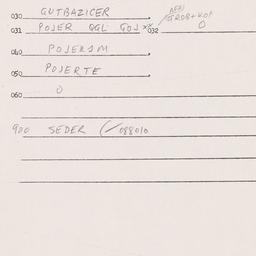 030 GUTBAZICER
031 POJER QGL GOJ 032 O
040 POJERSM
050 POJERTE
060 O
900 SEDER (/088010